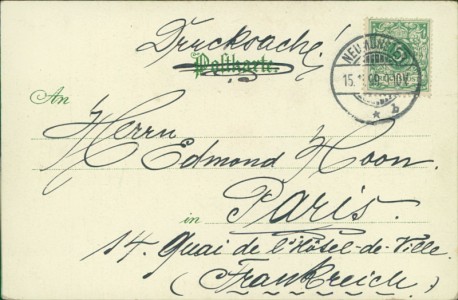 Drucksache!
Postkarte
NEUMÜNSTER
An
Herrn
Edmond Hoon.
in Paris.
14. Quai de l'Hôtel-de-Ville.
(Frankreich.)